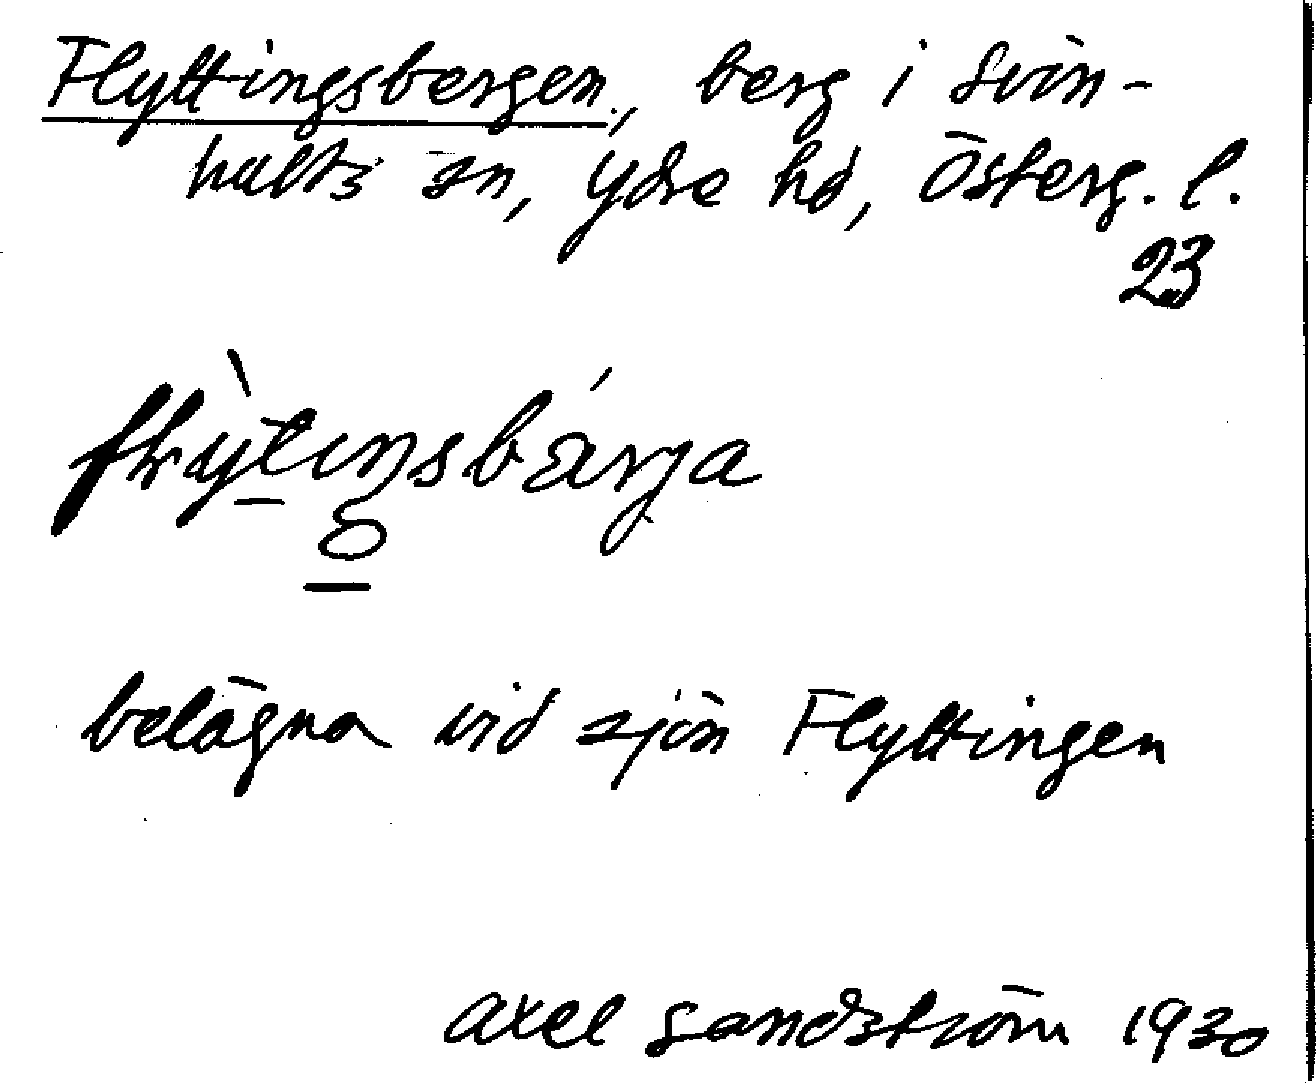 Flyttingsbergen, berg i Svin-
hults sn, Ydre hd, Österg. l.
23
belägna vid sjön Flyttingen
Axel Sandström 1930